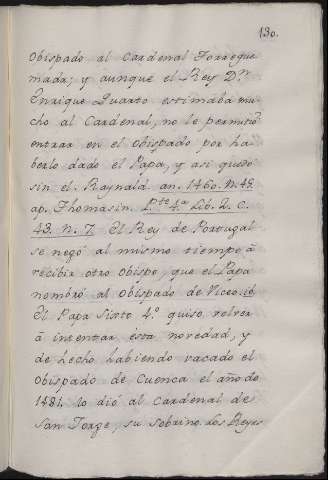 130.
Obispado al Cardenal Torrque
mada; y aunque el Rey D.n
Enrique Quarto estimaba mu
cho al Cardenal, no le permitió
entrar en el obispado por ha
berlo dado el Papa, y asi quedó
sin el. Raynald. an. 1460. N. 49.
ap. Thomasin. P.te 4.a Lib. 2. C.
43. n. 7. El Rey de Portugal
se negó al mismo tiempo á
recibir otro Obispo, que el Papa
nombró al Obispado de Viceo. id.
El Papa Sixto 4.o quiso volver
á intentar esta novedad, y
de hecho habiendo vacado el
Obispado de Cuenca el año de
1481. lo dió al Cardenal de
San Jorge, su sobrino. Los Reyes